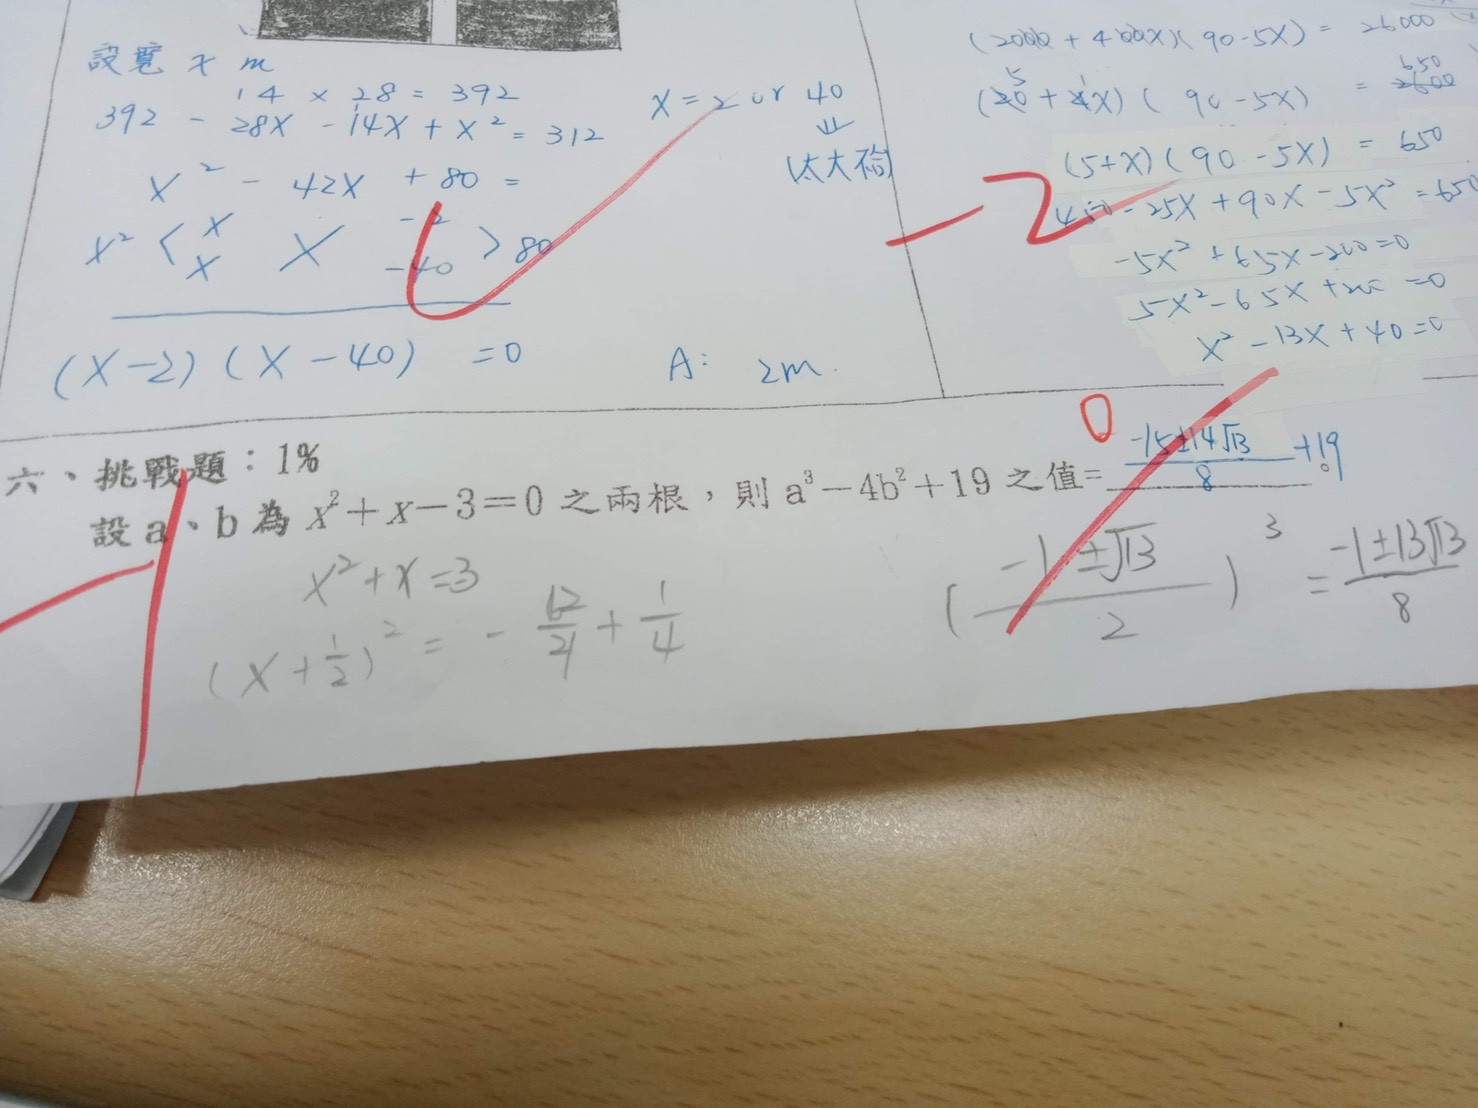 設寬 x m
14 × 28 = 392
392 - 28X - 14X + X² = 312
X² - 42X + 80 =
X² < X X -2 > 80
X -40
(X-2)(X-40) = 0
X = 2 or 40
⇓
(太大
A: 2m.
(2000 + 400X)(90-5X) = 26000
5 1 650
(20 + 4X)(90-5X) = 2600
(5+X)(90-5X) = 650
-2
450-25X+90X-5X²=650
-5X²+65X-200=0
5X²-65X+200=0
X²-13X+40=0
六、挑戰題：1%
0
設 a、b 為 x²+x-3=0 之兩根，則 a³-4b²+19 之值= +19
8
X²+X=3
(X+1/2)² = - 12/4 + 1/4
((-1±√13)/2)³ = (-1±13√13)/8